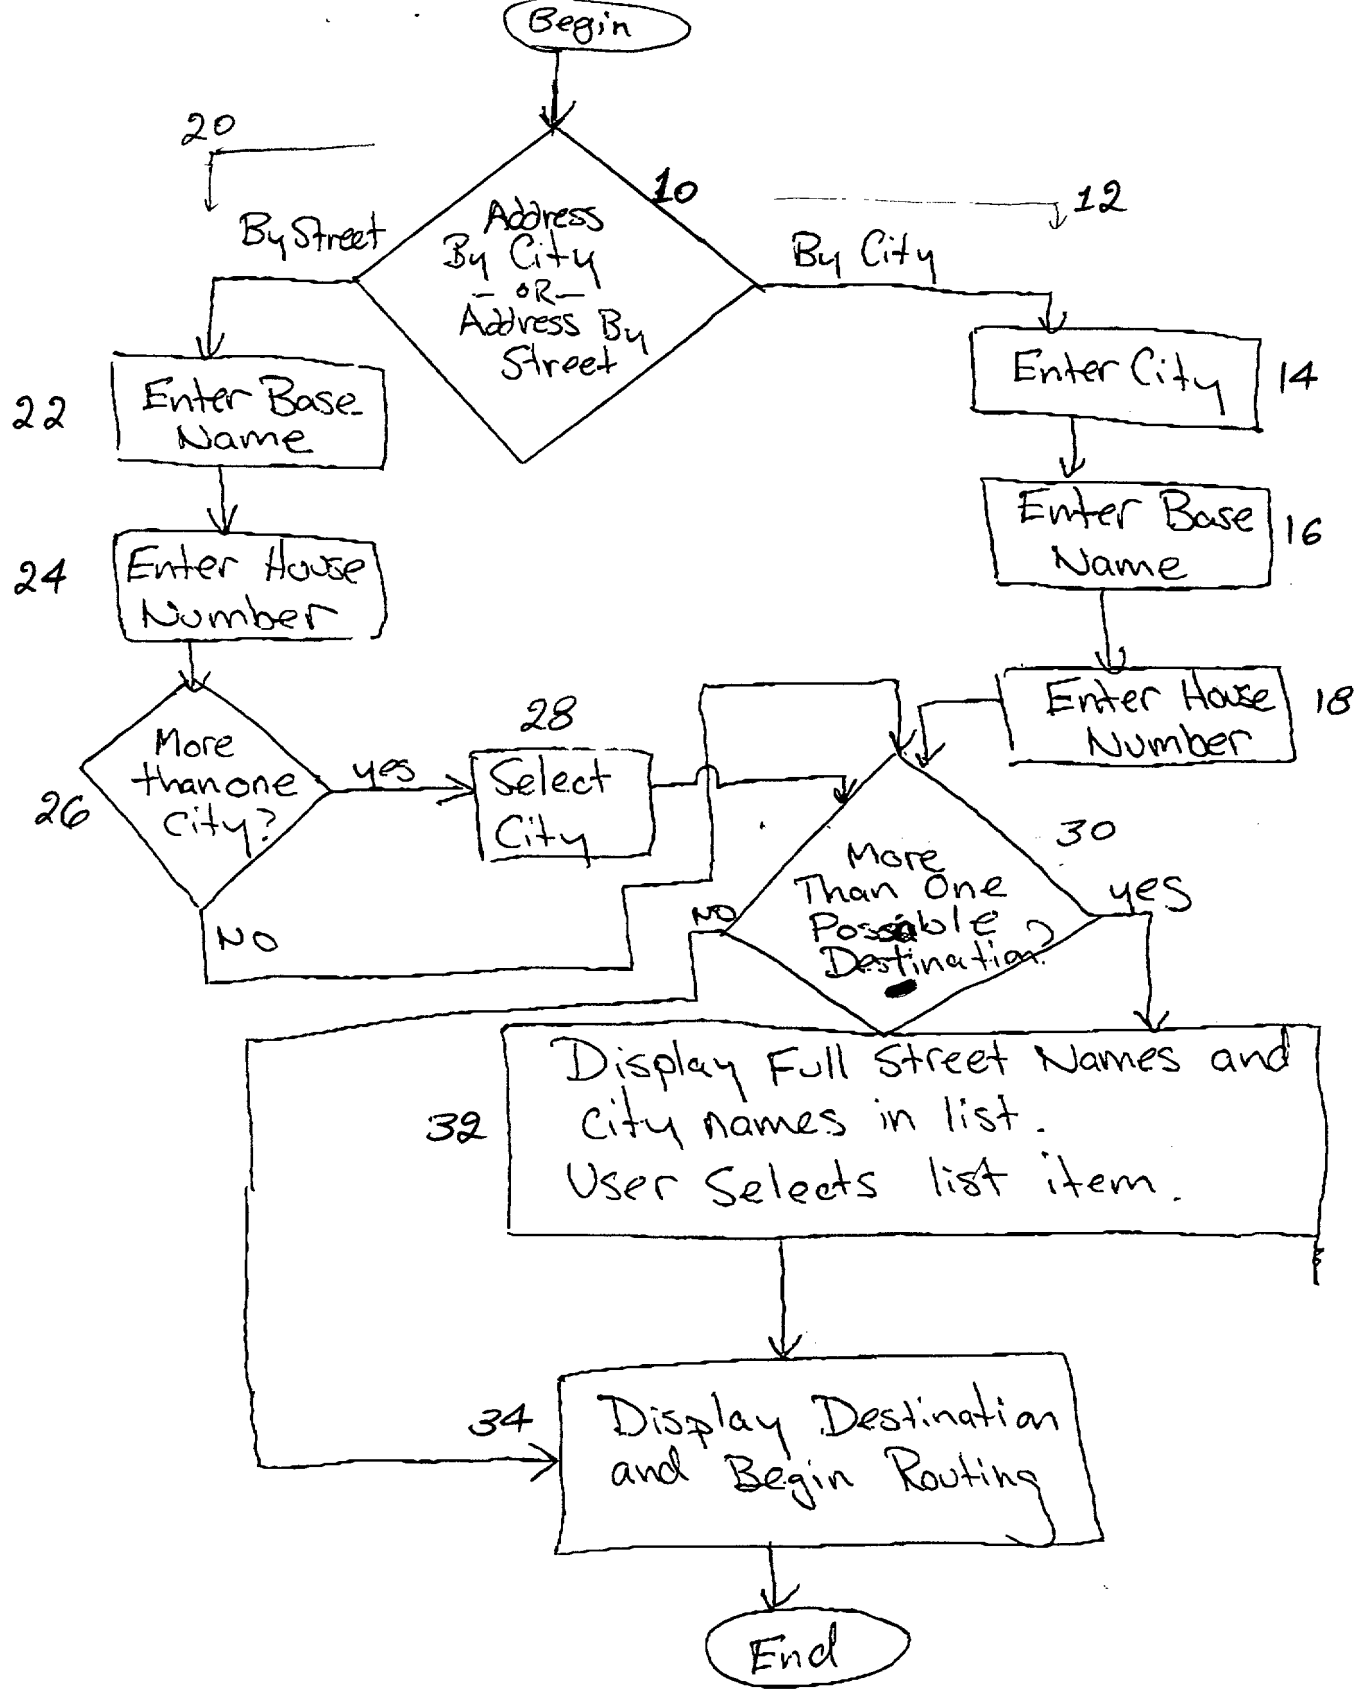 Begin
20
10
12
By Street
Address
By City
- OR -
Address By
Street
By City
22
Enter Base
Name
Enter City
14
Enter Base
Name
16
24
Enter House
Number
Enter House
Number
18
26
More
than one
City?
yes
28
Select
City
NO
30
More
Than One
Possible
Destination?
NO
yes
32
Display Full Street Names and
City names in list.
User Selects list item.
34
Display Destination
and Begin Routing
End